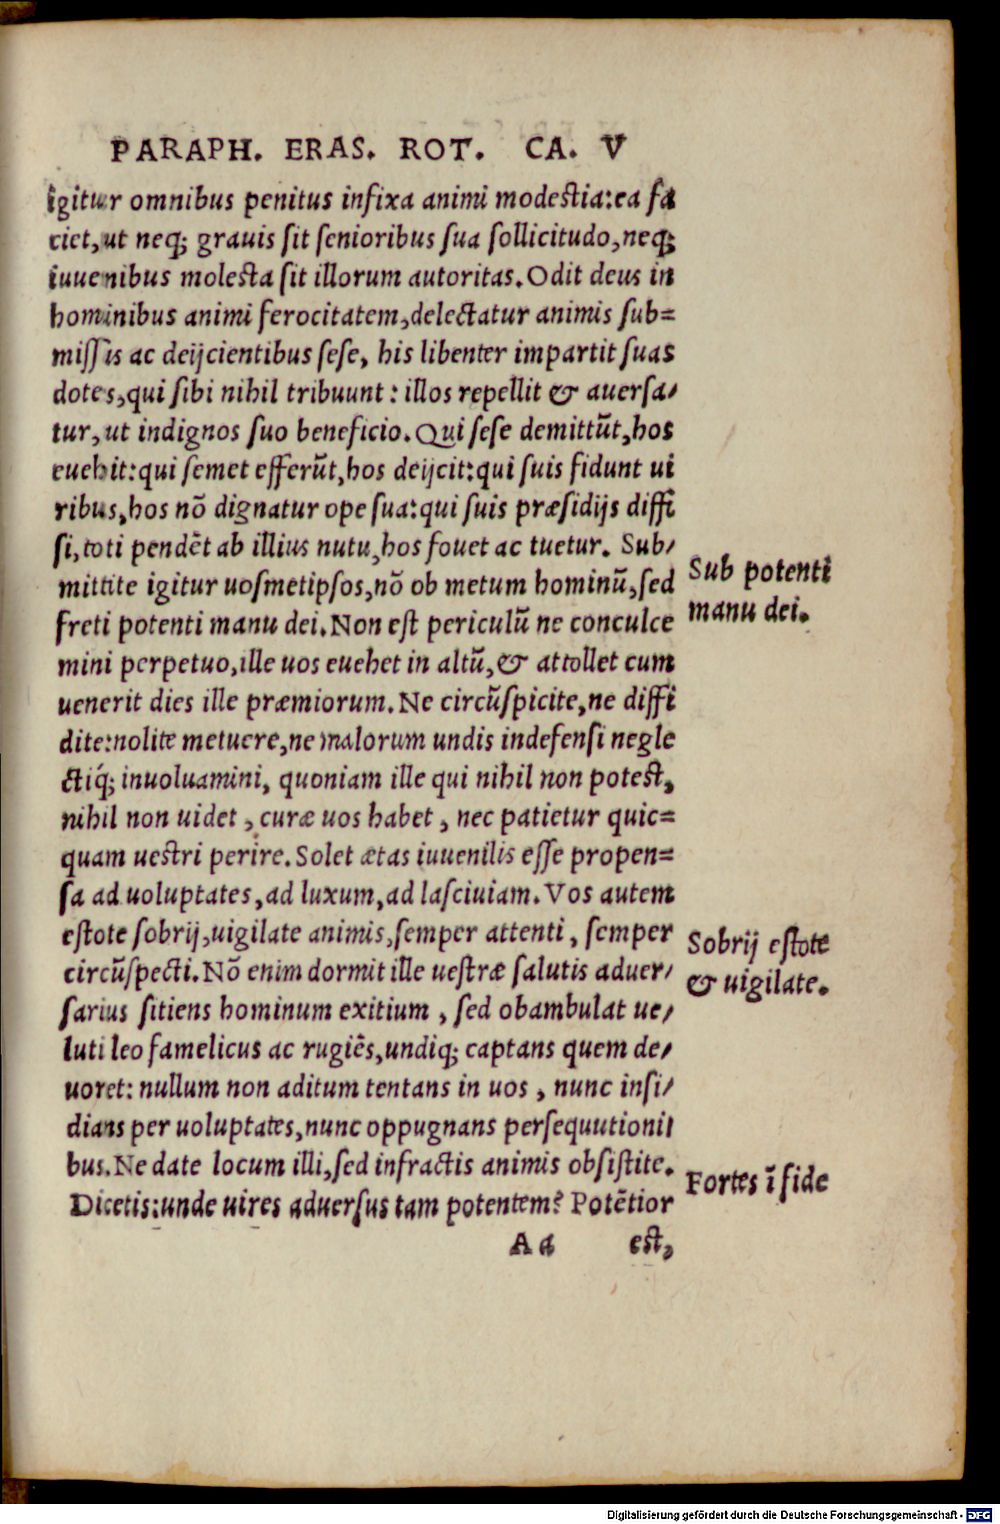 PARAPH. ERAS. ROT. CA. V
igitur omnibus penitus infixa animi modestia:ea fa
ciet,ut neq; grauis sit senioribus sua sollicitudo,neq;
iuuenibus molesta sit illorum autoritas. Odit deus in
hominibus animi ferocitatem,delectatur animis sub=
missis ac deijcientibus sese, his libenter impartit suas
dotes,qui sibi nihil tribuunt: illos repellit & auersa/
tur,ut indignos suo beneficio. Qui sese demittūt,hos
euehit:qui semet efferūt,hos deijcit:qui suis fidunt ui
ribus,hos nō dignatur ope sua:qui suis præsidijs diffi
si,toti pendēt ab illius nutu,hos fouet ac tuetur. Sub/
mittite igitur uosmetipsos,nō ob metum hominū,sed
freti potenti manu dei. Non est periculū ne conculce
mini perpetuo,ille uos euehet in altū,& attollet cum
uenerit dies ille præmiorum. Ne circūspicite,ne diffi
dite:nolite metuere,ne malorum undis indefensi negle
ctiq́; inuoluamini, quoniam ille qui nihil non potest,
nihil non uidet, curæ uos habet, nec patietur quic=
quam uestri perire. Solet ætas iuuenilis esse propen=
sa ad uoluptates,ad luxum,ad lasciuiam. Vos autem
estote sobrij,uigilate animis,semper attenti, semper
circūspecti. Nō enim dormit ille uestræ salutis aduer/
sarius sitiens hominum exitium, sed obambulat ue/
luti leo famelicus ac rugiēs,undiq; captans quem de/
uoret: nullum non aditum tentans in uos, nunc insi/
dians per uoluptates,nunc oppugnans persequutioni
bus. Ne date locum illi,sed infractis animis obsistite.
Dicetis:unde uires aduersus tam potentem? Potētior
Aa est,
Sub potenti
manu dei.
Sobrij estote
& uigilate.
Fortes ī fide
Digitalisierung gefördert durch die Deutsche Forschungsgemeinschaft - DFG